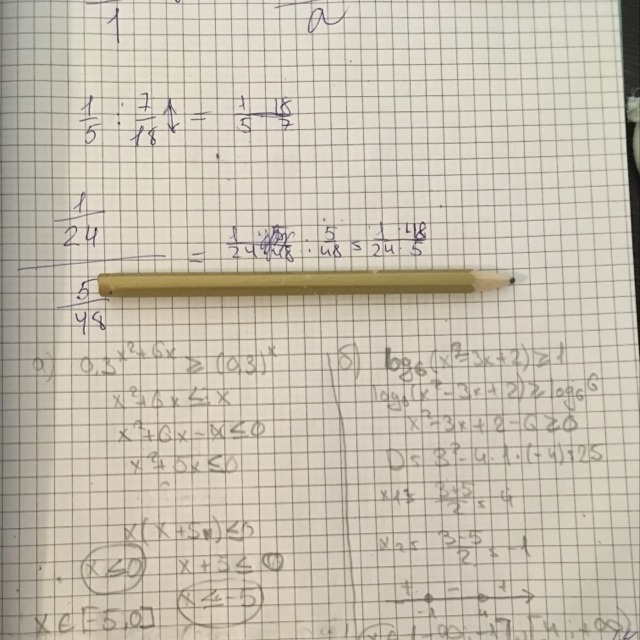 1 a
1/5 : 7/18 ↕ = 1/5 18/7
1/24 / 5/48 = 1/24 : 5/48 = 1/24 · 48/5
а) 0,3^(x²+6x) ≥ (0,3)^x
x²+6x ≤ x
x²+6x-x ≤ 0
x²+5x ≤ 0
x(x+5) ≤ 0
x ≤ 0 x+5 ≤ 0
x ≤ -5
x ∈ [-5,0]
б) log₆(x²-3x+2) ≥ 1
log₆(x²-3x+2) ≥ log₆6
x²-3x+2-6 ≥ 0
D = 3²-4·1·(-4)=25
x₁ = (3+5)/2 = 4
x₂ = (3-5)/2 = -1
+ - +